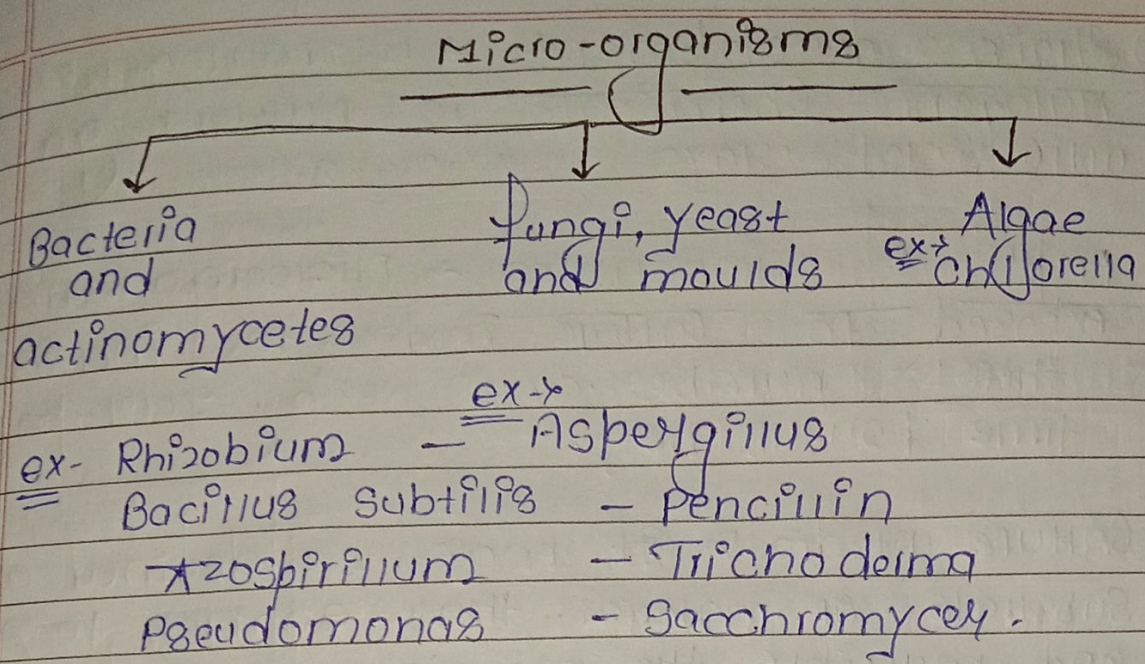 Micro-organisms
Bacteria
and
actinomycetes
fungi, yeast
and moulds
Algae
ex→ Chlorella
ex- Rhizobium
Bacillus subtilis
Azospirillum
Pseudomonas
ex→
- Aspergillus
- Pencillin
- Trichoderma
- Sacchromyces.